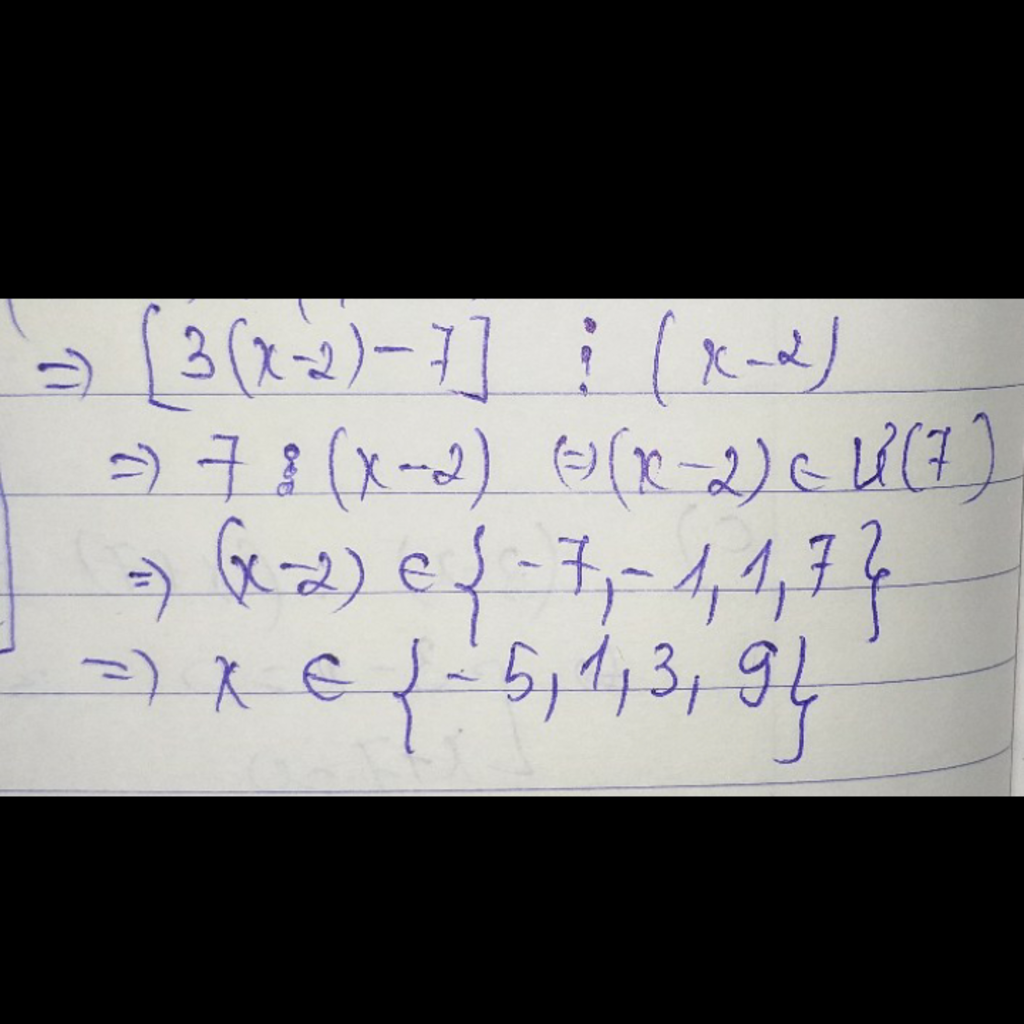 => [3(x-2)-7] ⋮ (x-2)
=> 7 ⋮ (x-2) <=> (x-2) ∈ Ư(7)
=> (x-2) ∈ {-7,-1,1,7}
=> x ∈ {-5,1,3,9}